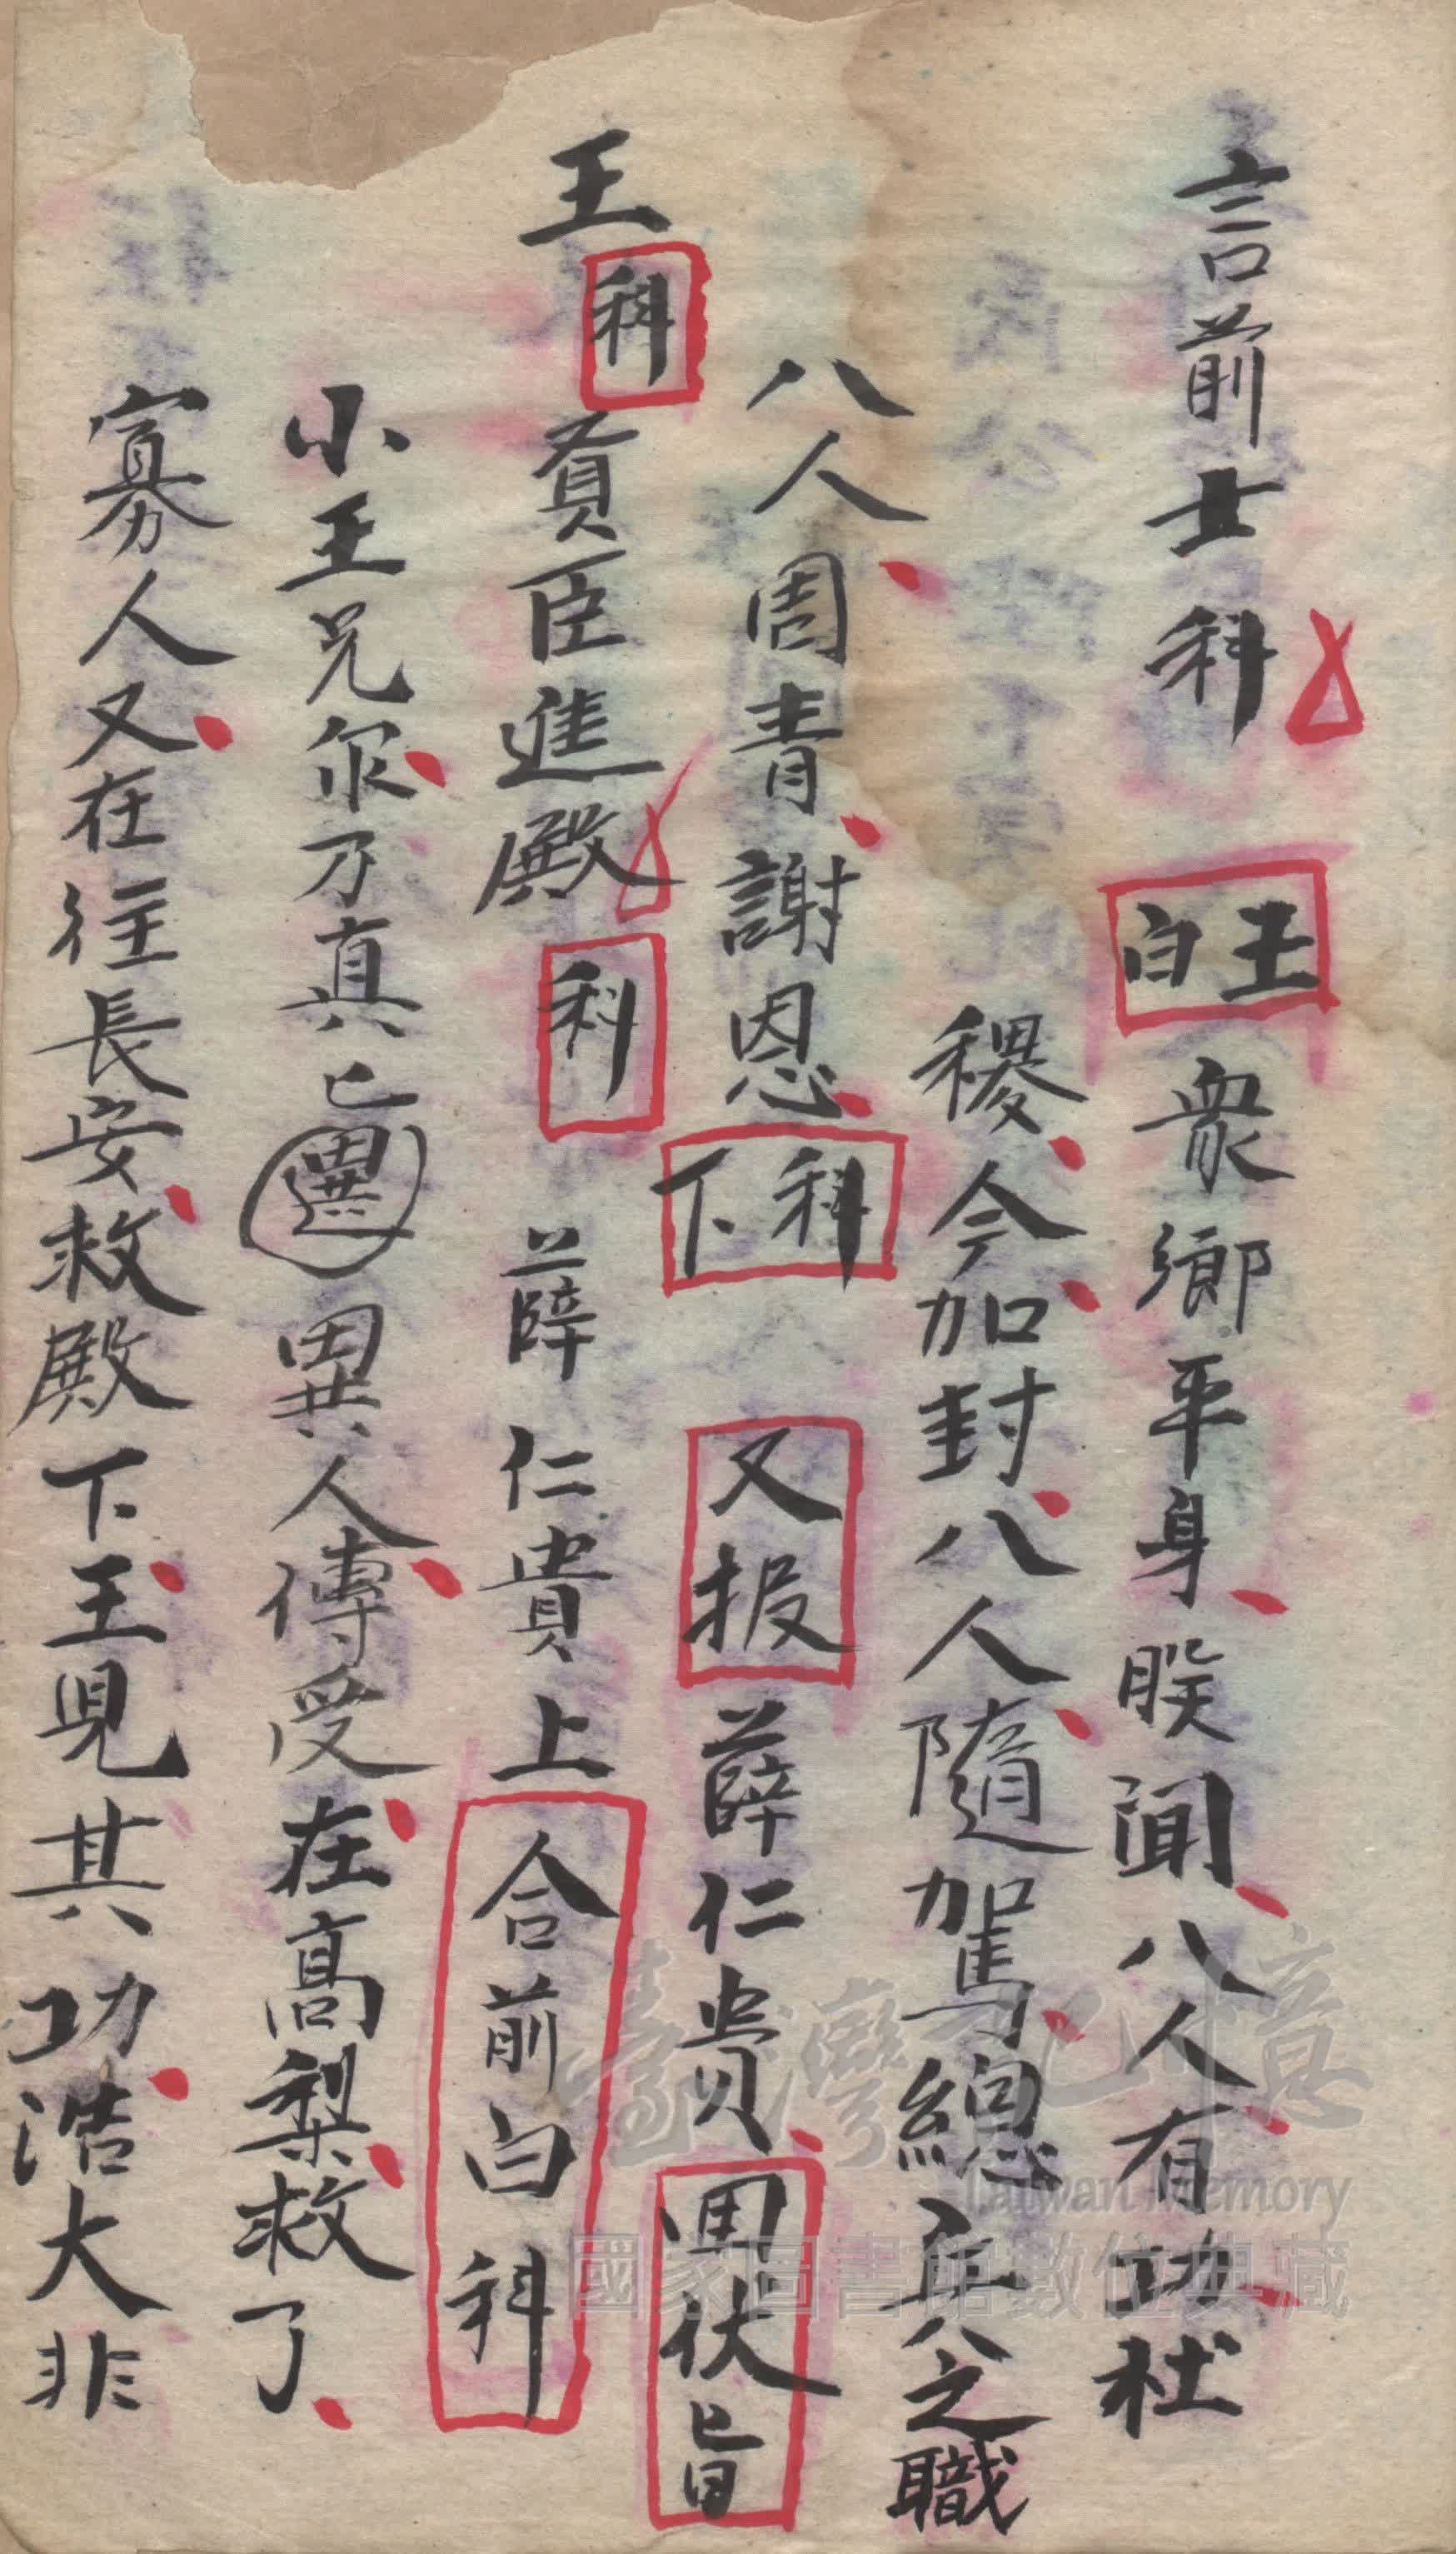 言前士科 王白 衆鄉平身朕聞八人有功社
稷今加封八人隨駕總兵之職
八人周青謝恩 科下 又报 薛仁贵 周伏旨
王 科 貢臣進殿 科 薛仁貴上 合前白科
小王兄尔乃真已異人傳受在高梨救了
寡人又在往長安救殿下王見其功浩大非
臺灣記憶
Taiwan Memory
國家圖書館數位典藏